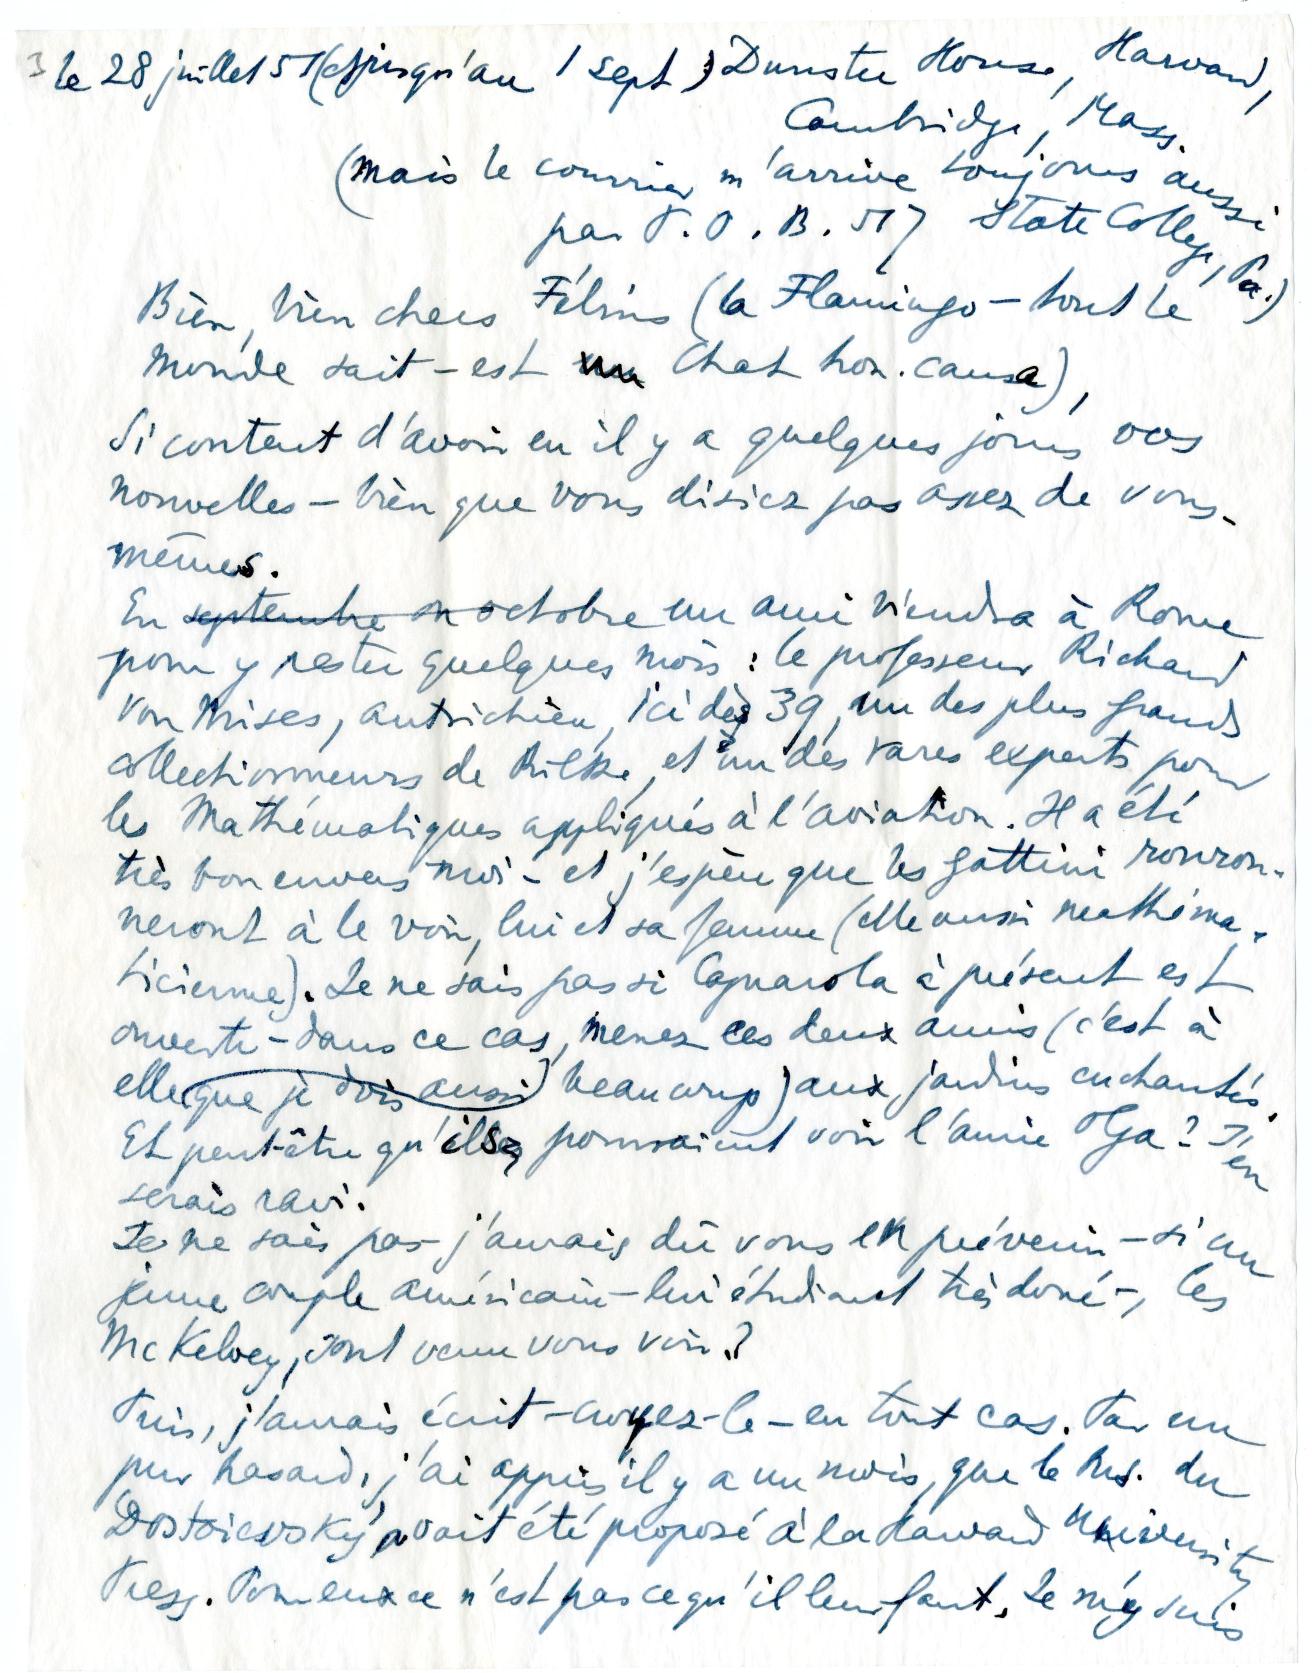 3 le 28 juillet 51 (et jusqu'au 1 sept) Dunster House, Harvard,
Cambridge, Mass.
(mais le courrier m'arrive toujours aussi
par P.O.B. 517 State College, Pa.)
Bien, bien chers Félins (la Flamingo – tout le
monde sait – est un Chat hon. causa),
Si content d'avoir eu il y a quelques jours vos
nouvelles – bien que vous disiez pas assez de vous-
mêmes.
En septembre ou octobre un ami viendra à Rome
pour y rester quelques mois : le professeur Richard
von Mises, autrichien, ici dès 39, un des plus grands
collectionneurs de Rilke, et un des rares experts pour
les Mathématiques appliqués à l'aviation. Il a été
très bon envers moi – et j'espère que les gattini ronron-
neront à le voir, lui et sa femme (elle aussi mathéma-
ticienne). Je ne sais pas si Cagnarola à présent est
ouverte – dans ce cas, menez ces deux amis (c'est à
elle que je dois aussi beaucoup) aux jardins enchantés.
Et peut-être qu'ils pourraient voir l'amie Olga? J'en
serais ravi.
Je ne sais pas – j'aurais dû vous en prévenir – si un
jeune couple américain – lui étudiant très doné –, les
McKelvey, sont venu vous voir?
Puis, j'aurais écrit – croyez-le – en tout cas. Par un
pur hasard, j'ai appris il y a un mois, que le Ms. du
Dostoievsky avait été proposé à la Harvard University
Press. Pour eux ce n'est pas ce qu'il leur faut. Je m'y suis